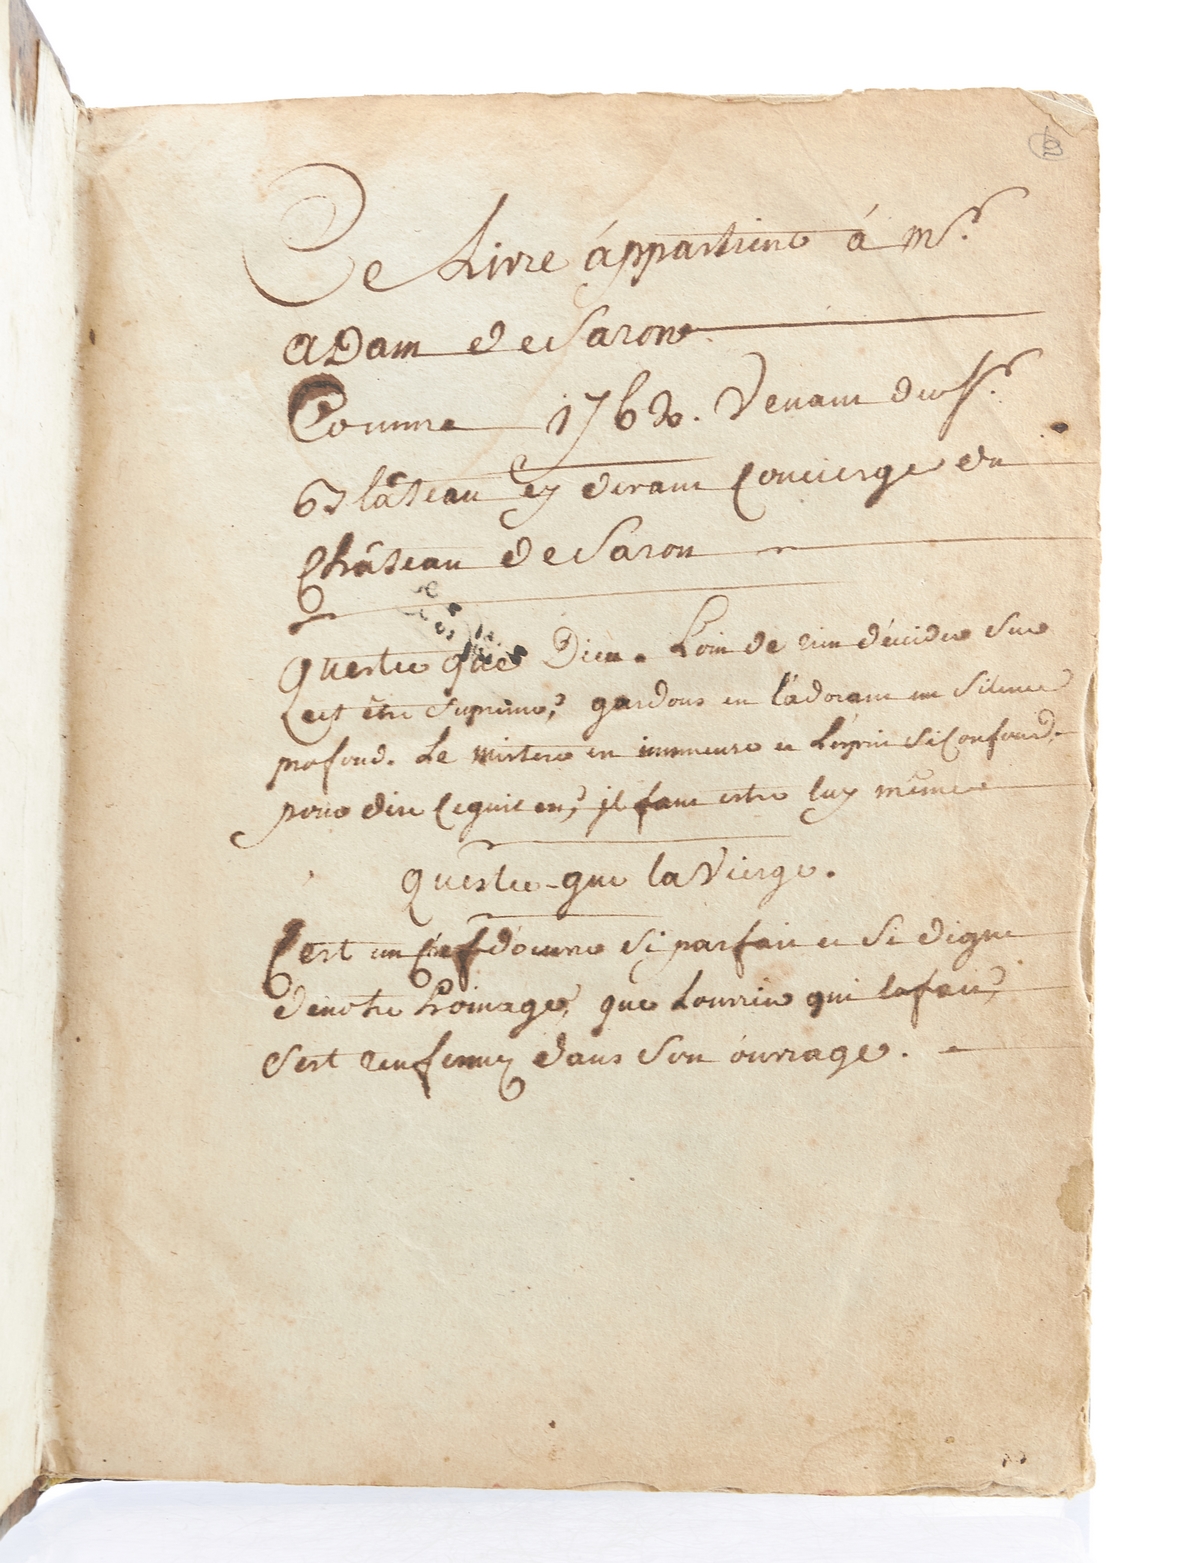 Ce Livre áppartient á mr.
ADam de Saron
Comme 176 . Venant du Sr.
Château cy devant Concierge du
Château de Saron
Questce que Dieu. Loin de rien décider sur
cet être Suprême, gardons en l'adorant un Silence
profond. Le mistere en immense et L'esprit si Confond.
pour dire Cequil en, jl faut estre luy même
Questce-que la Vierge.
C'est un Chef d'oeuvre si parfait et si digne
denotre homage, que Louvrier qui lafait,
Sest renfermez dans Son ouvrage.